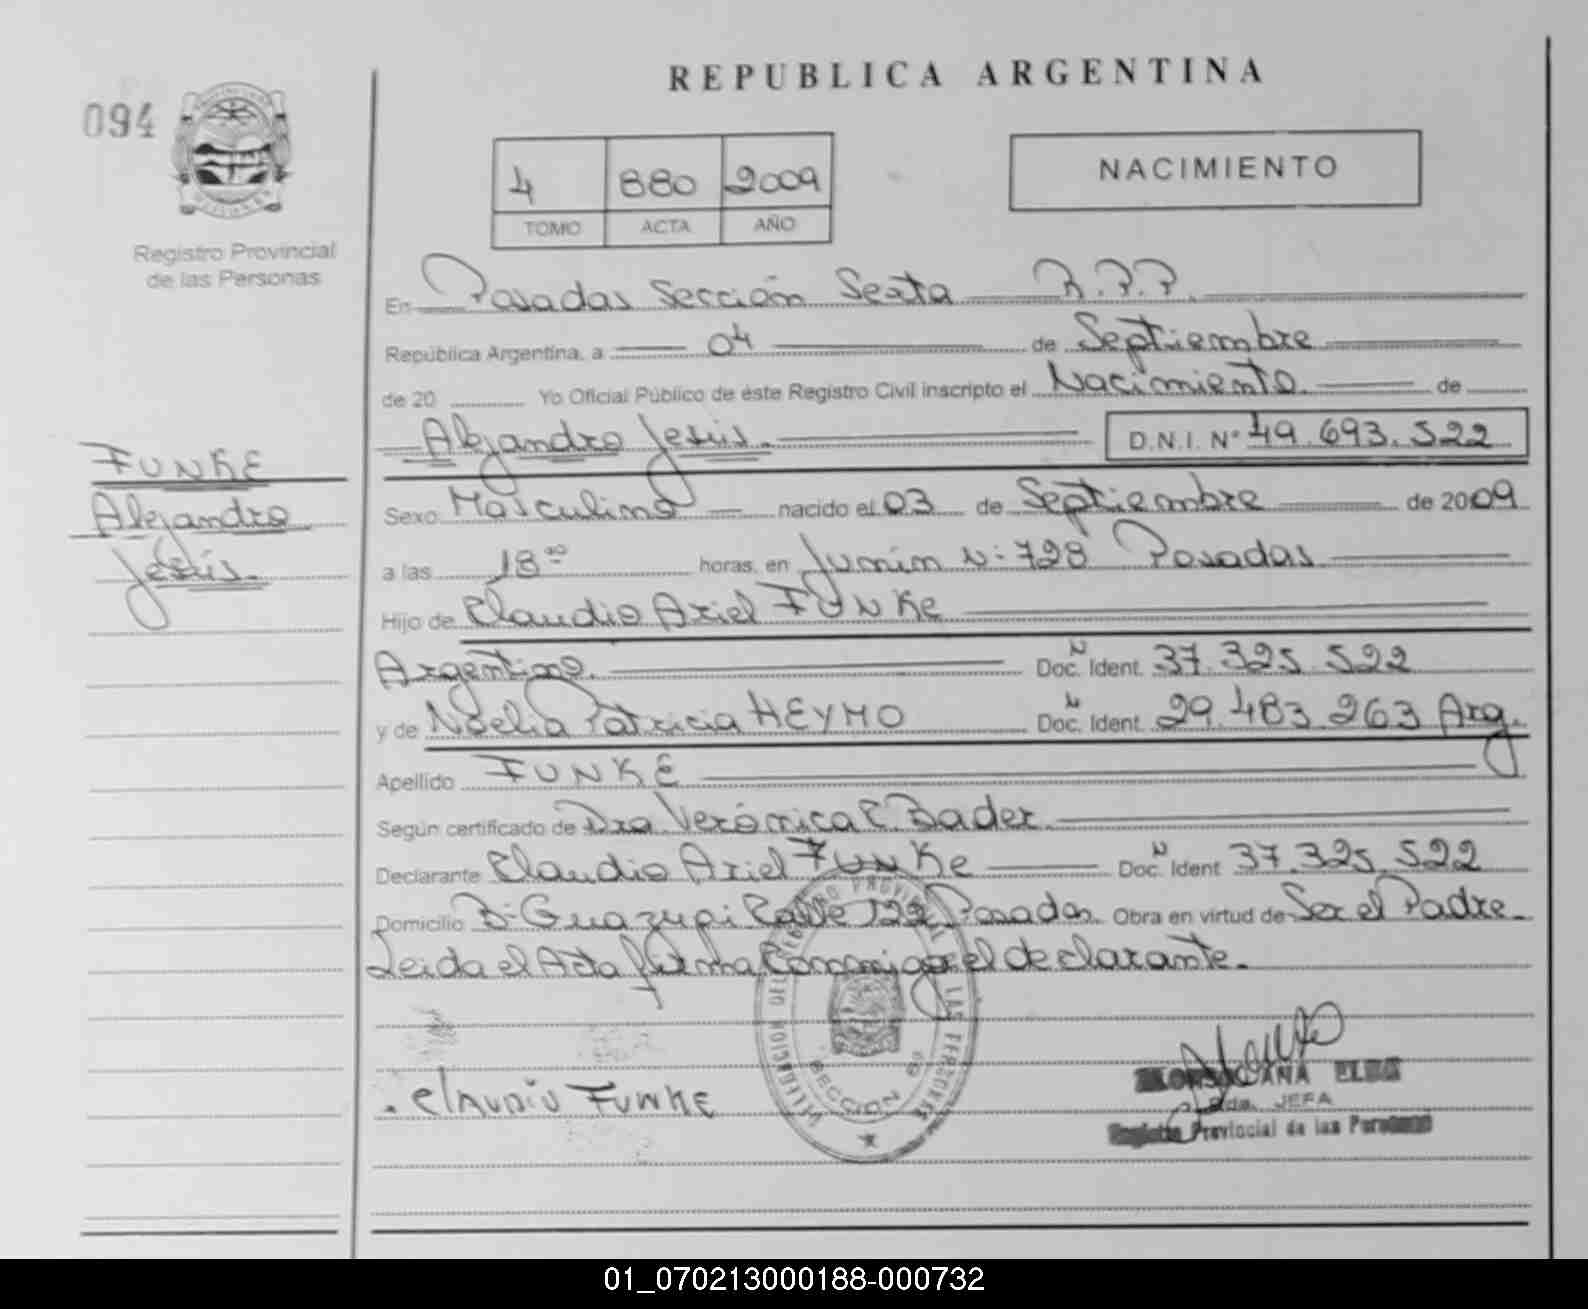 REPUBLICA ARGENTINA
094
4 880 2009
TOMO ACTA AÑO
NACIMIENTO
Registro Provincial
de las Personas
En Posadas Sección Sexta R.P.P.
República Argentina, a 04 de Septiembre
de 20 Yo Oficial Público de éste Registro Civil inscripto el Nacimiento. de
Alejandro Jesús. D.N.I. N° 49.693.522
FUNKE
Alejandro
Jesús.
Sexo Masculino nacido el 03 de Septiembre de 2009
a las 18 °° horas, en Junín N: 728 Posadas
Hijo de Claudio Ariel FUNKe
Argentino. Doc. Ident. N 37.325.522
y de Noelia Patricia HEYMO Doc. Ident. N 29.483.263 Arg.
Apellido FUNKE
Según certificado de Dra Verónica C. Bader.
Declarante Claudio Ariel FUNKe Doc. Ident N 37.325.522
Domicilio B- Guazupi Calle 122 Posadas. Obra en virtud de Ser el Padre.
Leida el Acta firma Conmigo el declarante.
DELEGACION DEL REGISTRO PROVINCIAL DE LAS PERSONAS
SECCION 6a
. Claudio FUNKE
ELBA
JEFA
Registro Provincial de las Personas
01_070213000188-000732